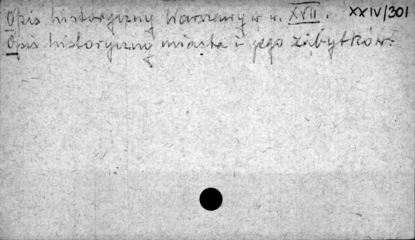 Opis historyczny Warszawy w w. XVII. XXIV/301
Opis historyczny miasta i jego zabytków.